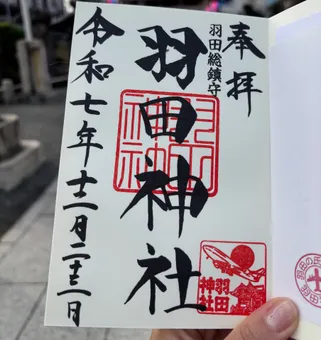 奉拝
羽田総鎮守
羽田神社
令和七年十二月二十三日
羽田
神社